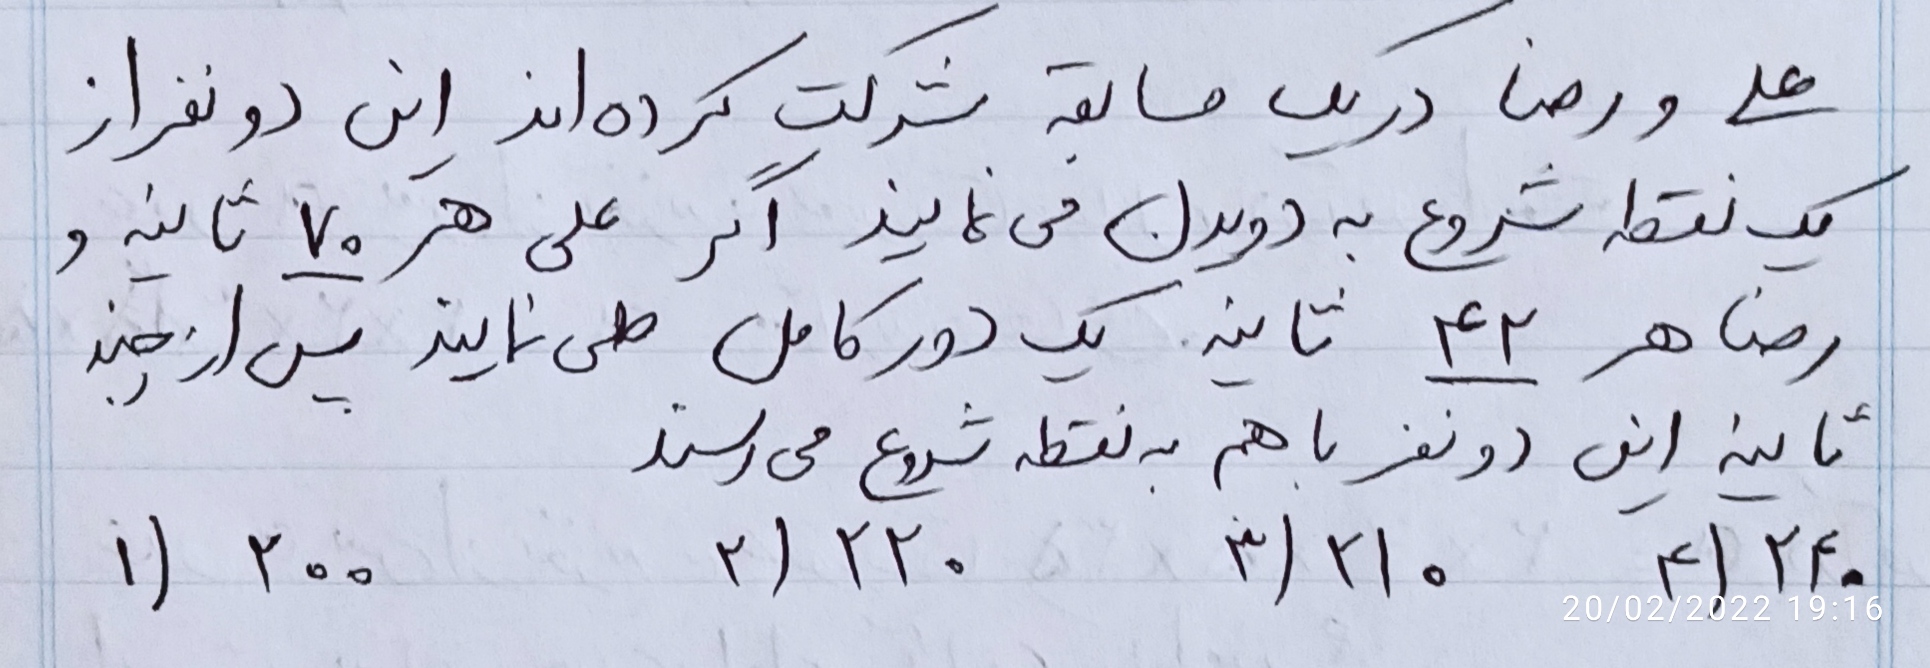 علی و رضا در یک مسابقه شرکت کرده اند این دو نفر از
یک نقطه شروع به دویدن می نمایند اگر علی هر ۷۰ ثانیه و
رضا هر ۴۲ ثانیه یک دور کامل طی نمایند پس از چند
ثانیه این دو نفر با هم به نقطه شروع می رسند
۱) ۲۰۰ ۲) ۲۲۰ ۳) ۲۱۰ ۴) ۲۴۰
20/02/2022 19:16